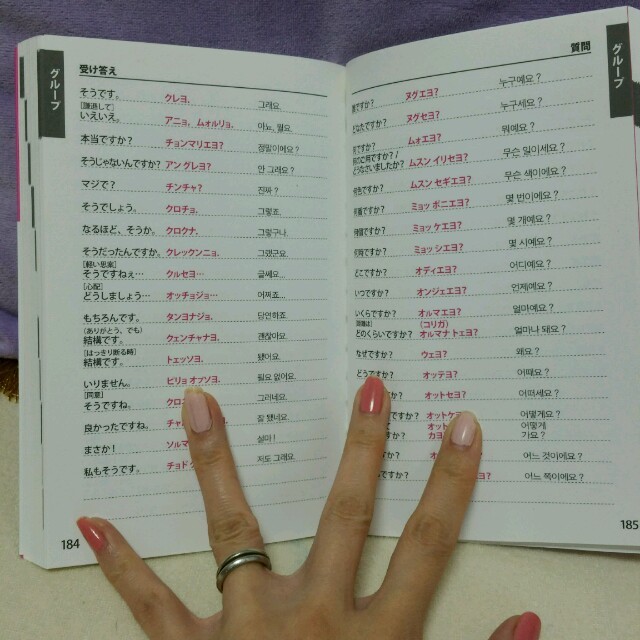 グループ
受け答え
そうです。 クレヨ。 그래요.
[謙遜して]
いえいえ。 アニョ、ムォルリョ。 아뇨, 뭘요.
本当ですか? チョンマリエヨ? 정말이에요?
そうじゃないんですか? アン グレヨ? 안 그래요?
マジで? チンチャ? 진짜?
そうでしょう。 クロチョ。 그렇죠.
なるほど、そうか。 クロクナ。 그렇구나.
そうだったんですか。 クレックンニョ。 그랬군요.
[軽い思案]
そうですねぇ… クルセヨ… 글쎄요...
[心配]
どうしましょう… オッチョジョ… 어쩌죠...
もちろんです。 タンヨナジョ。 당연하죠
(ありがとう、でも)
結構です。 クェンチャナヨ。 괜찮아요.
[はっきり断る時]
結構です。 トェッソヨ。 됐어요.
いりません。 ピリョ オプソヨ。 필요 없어요.
[同意]
そうですね。 クロ 그러네요.
良かったですね。 잘 됐네요.
まさか! ソルマ 설마!
私もそうです。 チョド 저도 그래요.
184
質問
グループ
ですか? ヌグエヨ? 누구예요?
どなたですか? ヌグセヨ? 누구세요?
ですか? ムォエヨ? 뭐예요?
何のご用ですか?/
どうなさいましたか? ムスン イリセヨ? 무슨 일이세요?
何色ですか? ムスン セギエヨ? 무슨 색이에요?
何番ですか? ミョッ ボニエヨ? 몇 번이에요?
何個ですか? ミョッ ケエヨ? 몇 개예요?
何時ですか? ミョッ シエヨ? 몇 시예요?
どこですか? オディエヨ? 어디예요?
いつですか? オンジェエヨ? 언제예요?
いくらですか? オルマエヨ? 얼마예요?
(コリガ)
どのくらいですか? オルマナ トェヨ? 얼마나 돼요?
なぜですか? ウェヨ? 왜요?
どうですか? オッテヨ? 어때요?
ですか? オットセヨ? 어떠세요?
ですか? オットケ 어떻게요?
オットケ 어떻게
ですか? カヨ? 가요?
ですか? 어느 것이에요?
ですか? ヨ? 어느 쪽이에요?
185